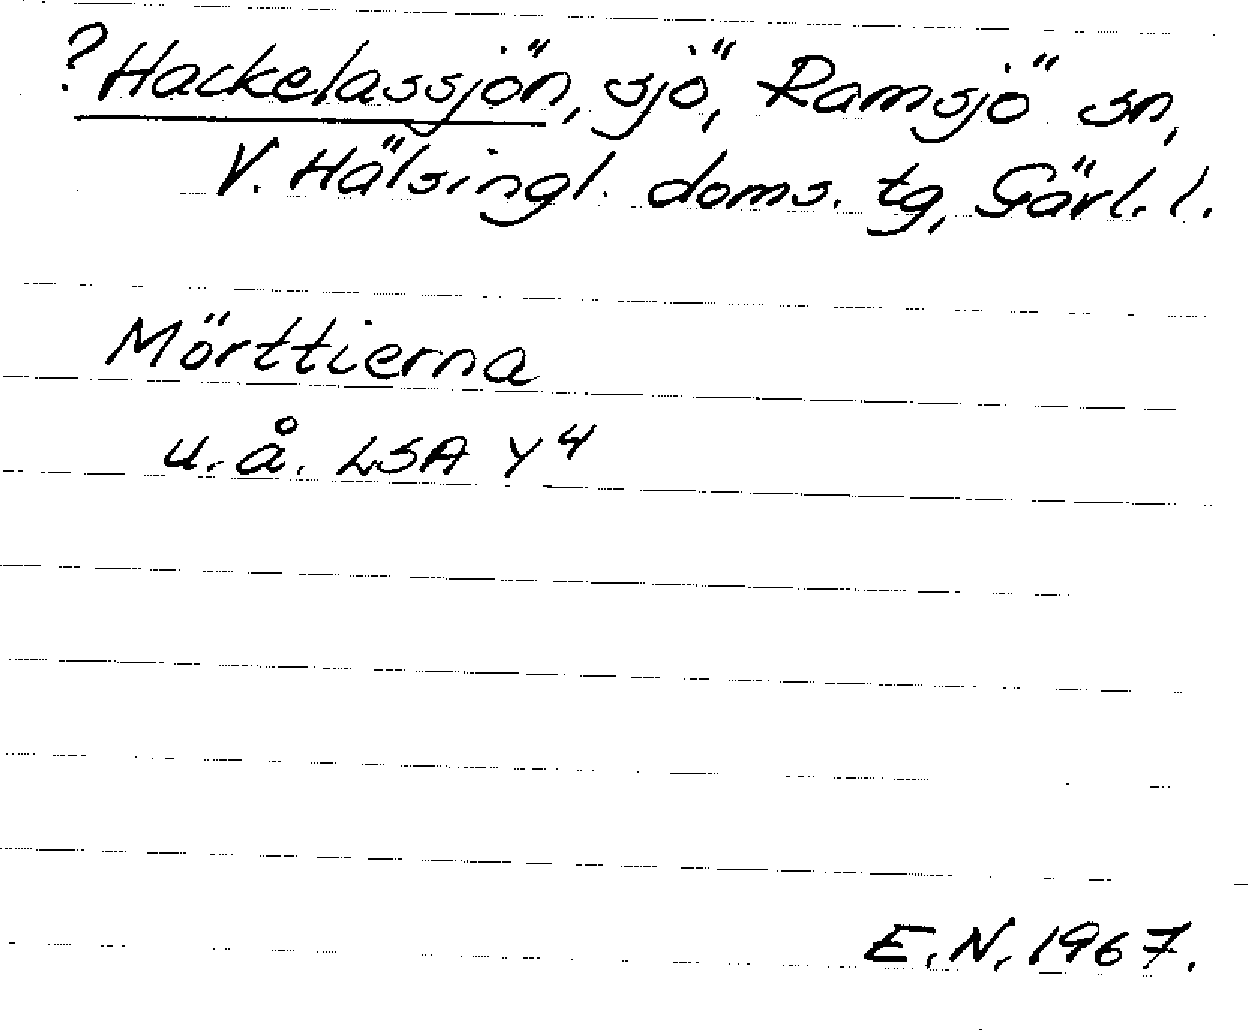 ?Hackelassjön, sjö, Ramsjö sn,
V. Hälsingl. doms. tg, Gävl. l.
Mörttierna
u. å. LSA Y4
E.N. 1967.